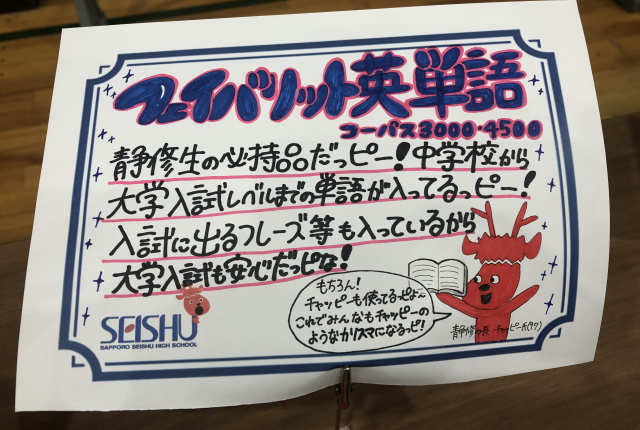 フェイバリット英単語
コーパス3000・4500
静修生の必持品だッピー!中学校から
大学入試レベルまでの単語が入ってるッピー!
入試に出るフレーズ等も入っているから
大学入試も安心だッピな!
もちろん!
チャッピーも使ってるっぴよ〜
これでみんなもチャッピーの
ようなカリスマになるっピ!
SEISHU
SAPPORO SEISHU HIGH SCHOOL